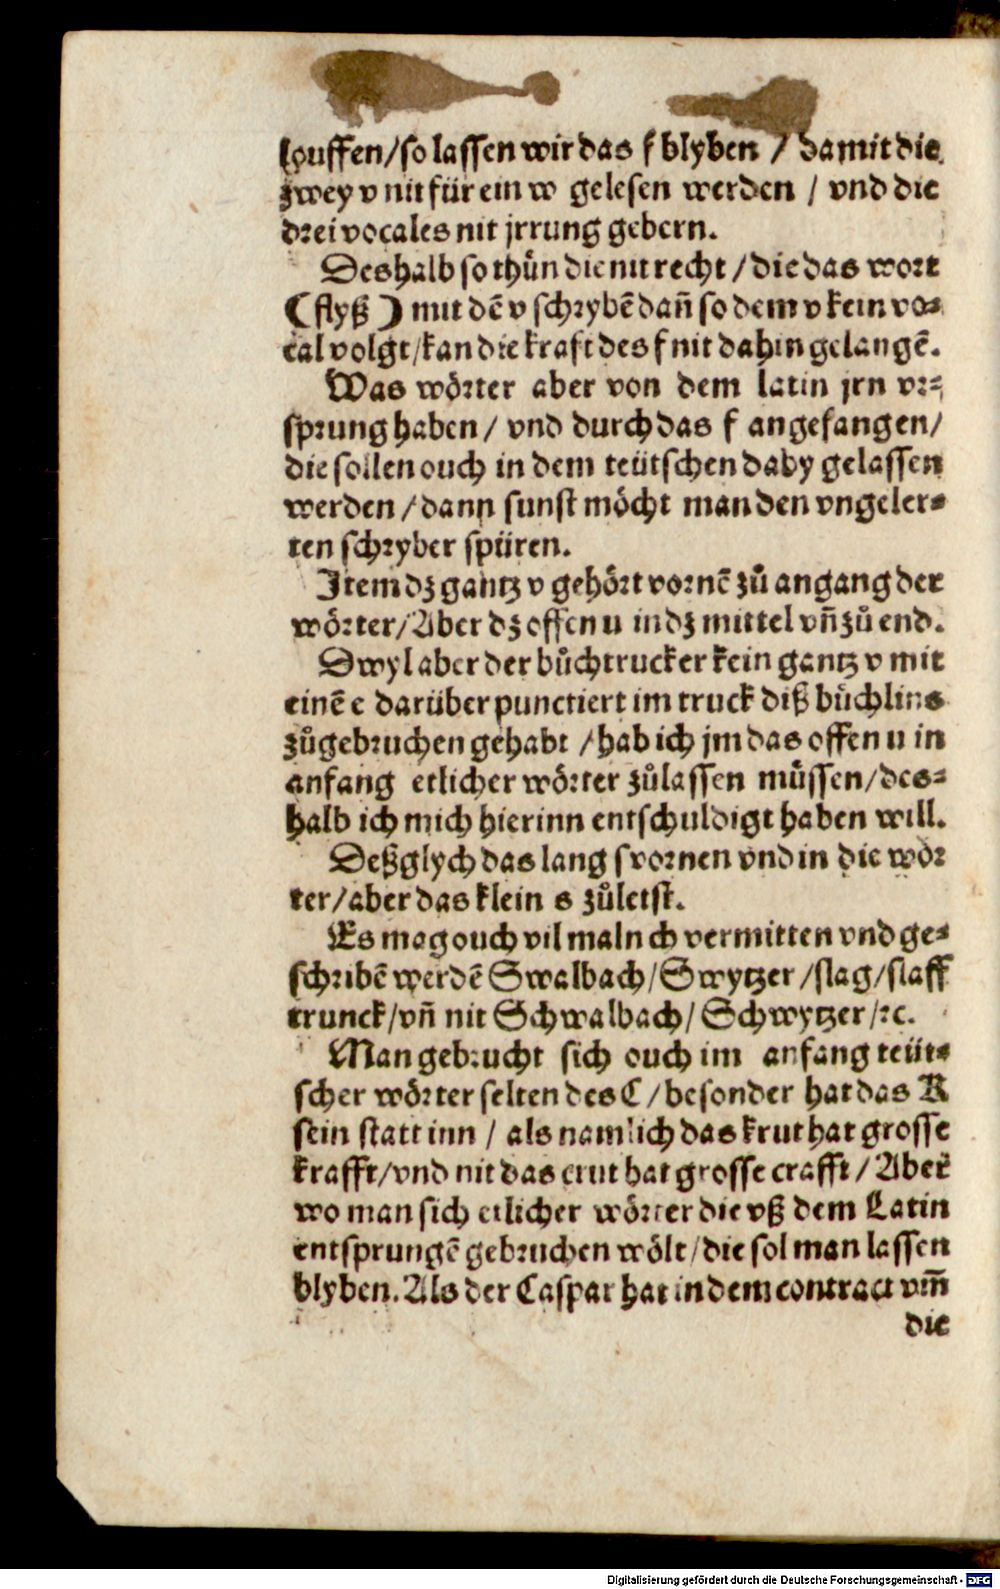 louffen/so lassen wir das f blyben / damit die
zwey v nit für ein w gelesen werden / vnd die
drei vocales nit jrrung gebern.
Deshalb so thůn die nit recht / die das wort
(flyß) mit dē v schrybē dañ so dem v kein vo=
cal volgt/kan die kraft des f nit dahin gelangē.
Was wörter aber von dem latin jrn vr=
sprung haben/ vnd durch das f angefangen/
die sollen ouch in dem teütschen daby gelassen
werden / dann sunst möcht man den vngeler=
ten schryber spüren.
Item dz gantz v gehört vornē zů angang der
wörter/Aber dz offen u in dz mittel vñ zů end.
Dwyl aber der bůchtrucker kein gantz v mit
einē e darüber punctiert im truck diß bůchlins
zůgebruchen gehabt / hab ich jm das offen u in
anfang etlicher wörter zůlassen müssen/des=
halb ich mich hierinn entschuldigt haben will.
Deßglych das lang s vornen vnd in die wör
ter/aber das klein s zůletst.
Es mag ouch vil maln ch vermitten vnd ge=
schribē werdē Swalbach/Swytzer /slag/slaff
trunck/vñ nit Schwalbach/ Schwytzer/ꝛc.
Man gebrucht sich ouch im anfang teüt=
scher wörter selten des C / besonder hat das K
sein statt inn / als namlich das krut hat grosse
krafft/vnd nit das crut hat grosse crafft / Aber
wo man sich etlicher wörter die vß dem Latin
entsprungē gebruchen wölt/die sol man lassen
blyben. Als der Caspar hat in dem contract vm̄
die
Digitalisierung gefördert durch die Deutsche Forschungsgemeinschaft - DFG